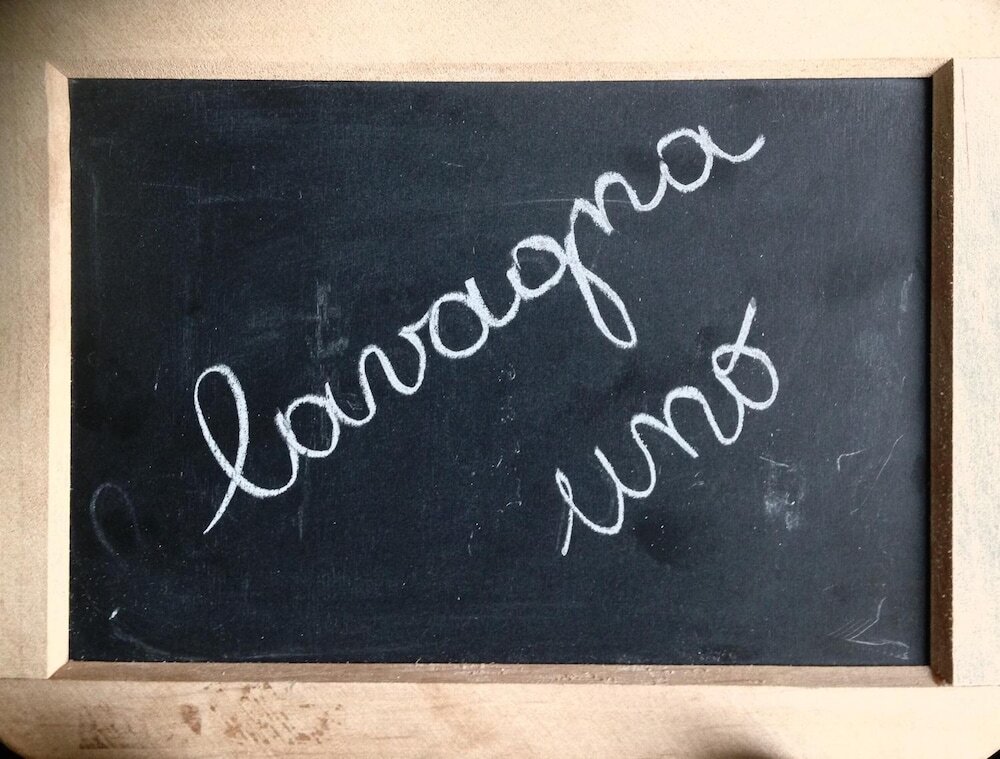 lavagna
uno